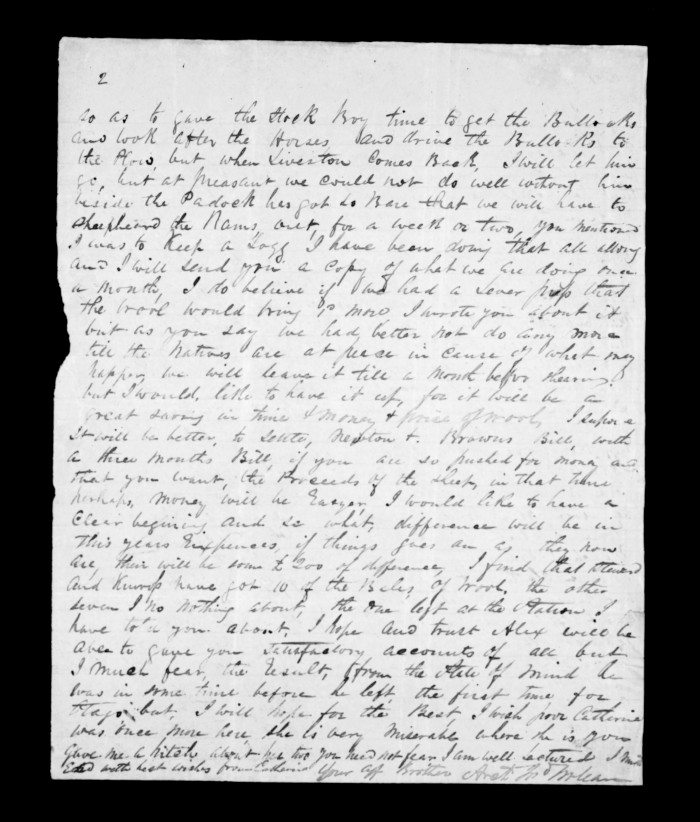 2
so as to gave the Stock Boy time to get the Bullocks
and look after the Horses, and drive the Bullocks to
the Plow, but when Liveston Comes Back, I will let him
go, but at preasant we could not do well without him
beside the Padock hes got so Bare that we will have to
sheepheard the Rams, out, for a week or two, you mentioned
I was to Keep a Logg I have been doing that all along
and I will send you a copy of what we are doing once
a month, I do believe if we had a Lever press that
the wool would bring more I wrote you about it
but as you say we had better not do any more
till the Natives are at pease in cause of what may
happen we will leave it till a month before shearing
but I would, like to have it up, for it will be a
great saving in time & money & price of wool, I supose
It will be better, to settle, Newton &. Browns Bill, with
a three months Bill, if you are so pushed for money and
that you want, the Proceeds of the sheep, in that time
perhaps, money will be Easyer, I would like to have a
Clear begining and se what, difference will be in
this years Expences, if things goes on as they now
are, their will be some £200 of difference, I find that
and have got 10 of the Bales, Of Wool, the other
seven I no nothing about, the one left at the Station I
have told you about, I hope and trust Alex will be
able to gave you satisfactory accounts of all but
I much fear, the Result, from the state of mind he
was in some time before he left the first time for
but, I will hope for the Best, I wish poor Catherine
was once more here she is very miserable where he is you
gave me a about her two you need not fear I am well Lectured I must
End with best wishes from Catherine Your aff Brother Archd Jno McLean